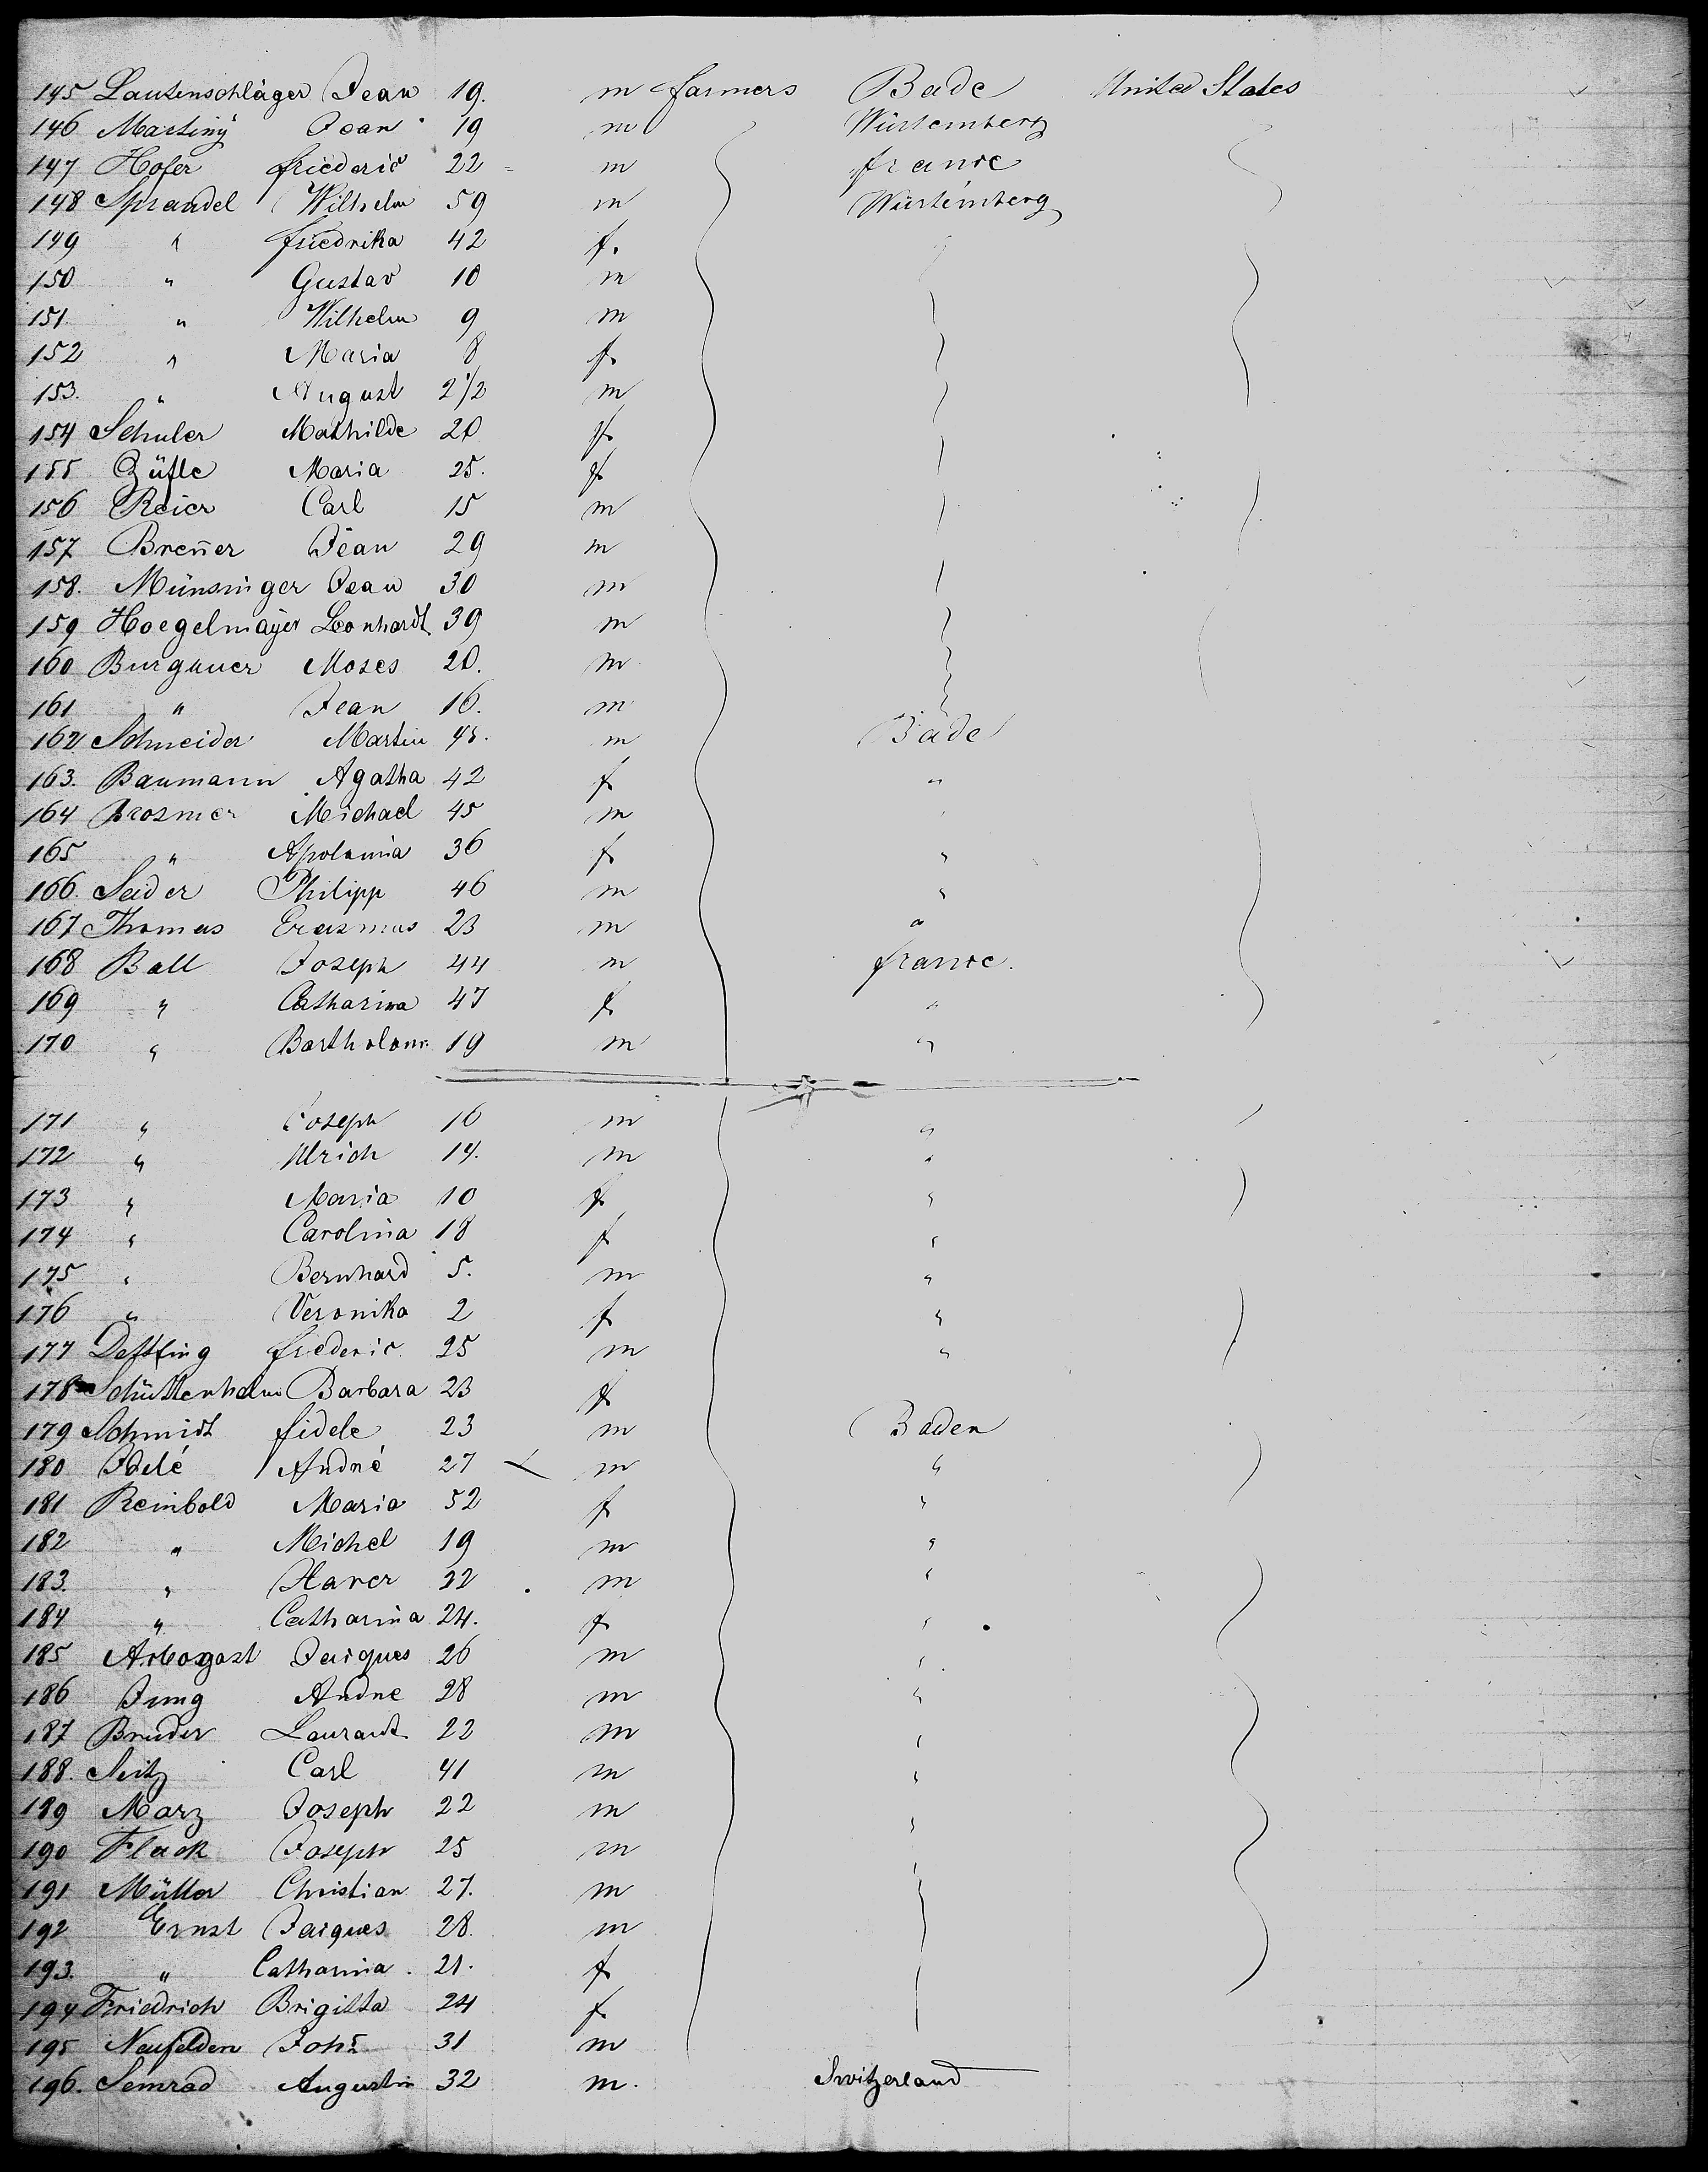 145 Lautenschläger Jean 19. m farmers Bade United States
146 Martiny Jean 19 m Würtemberg
147 Hofer friederic 22 m france
148 Sprandel Wilhelm 59 m Würtemberg
149 " friedrika 42 f.
150 " Gustav 10 m
151 " Wilhelm 9 m
152 " Maria 8 f.
153. " August 2 1/2 m
154 Schuler Mathilde 20 f
155 Züfle Maria 25. f
156 Reier Carl 15 m
157 Breñer Jean 29 m
158. Münsinger Jean 30 m
159 Hoegelmayer Leonhardt 39 m
160 Burgauer Moses 20. m
161 " Jean 16. m
162 Schneider Martin 45. m Bade
163. Baumann Agatha 42 f "
164 Brosmer Michael 45 m "
165 " Apolonia 36 f "
166. Seider Philipp 46 m "
167 Thomas Erasmus 23 m "
168 Ball Joseph 44 m france.
169 " Catharina 47 f "
170 " Bartholom. 19 m "
171 " Joseph 16 m "
172 " Ulrich 14. m "
173 " Maria 10 f "
174 " Carolina 18 f "
175 " Bernhard 5. m "
176 " Veronika 2 f "
177 Dettling frederic 25 m "
178 Schüttenhelm Barbara 23 f
179 Schmidt fidele 23 m Baden
180 André 27 m "
181 Reinbold Maria 52 f "
182 " Michel 19 m "
183. " Xaver 22 m "
184 " Catharina 24. f "
185 Arbogast Jacques 26 m "
186 Jung Andre 28 m "
187 Bruder Laurant 22 m "
188. Seitz Carl 41 m "
189 Marz Joseph 22 m "
190 Flack Joseph 25 m
191 Müller Christian 27. m
192 Ernst Jacques 28. m
193. " Catharina. 21. f
194 Friedrich Brigitta 24 f
195 Neufelden Joh 31 m
196. Semrad Augustin 32 m. Switzerland